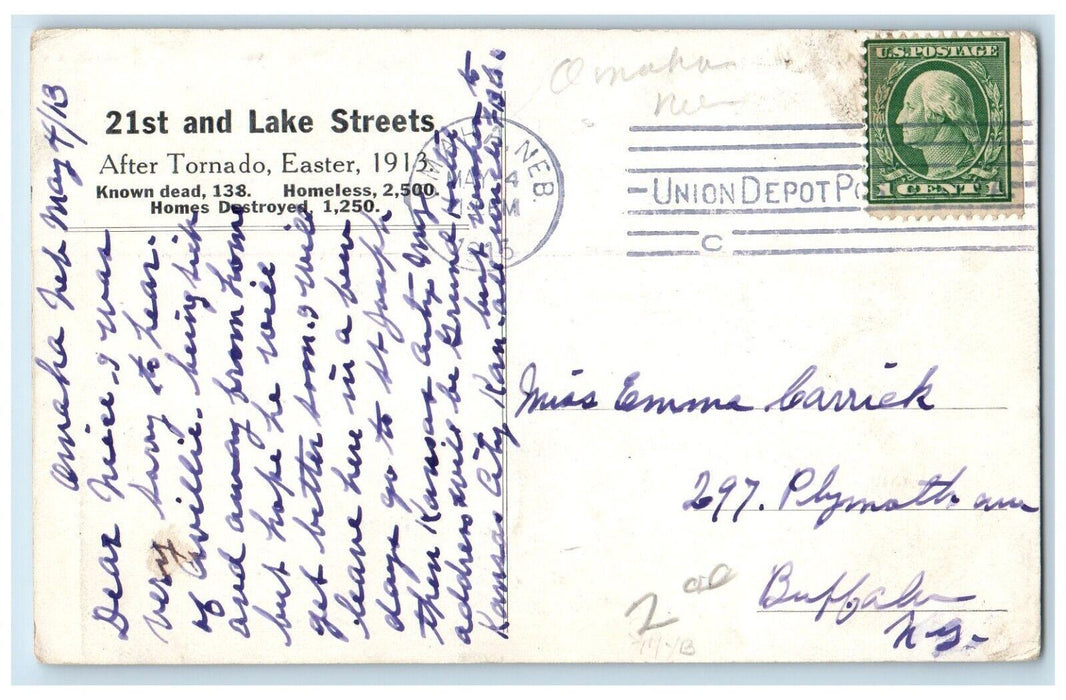 21st and Lake Streets
After Tornado, Easter, 1913.
Known dead, 138. Homeless, 2,500.
Homes Destroyed, 1,250.
Omaha Neb May 4/13
Dear Niece. I was
very sorry to hear.
of Willie. being sick
and away from home
but hope he will
get better soon. I will
leave here in a few
days go to St Joseph
then Kansas City Mo
address will be Grund Hotel
Kansas City Kan. but write to
all
Omaha
Neb
OMAHA, NEB.
MAY 4
M
1913
UNION DEPOT PO
C
U.S. POSTAGE
1 CENT 1
Miss Emma Carrick
297. Plymouth ave
Buffalo
N.Y.
2 00